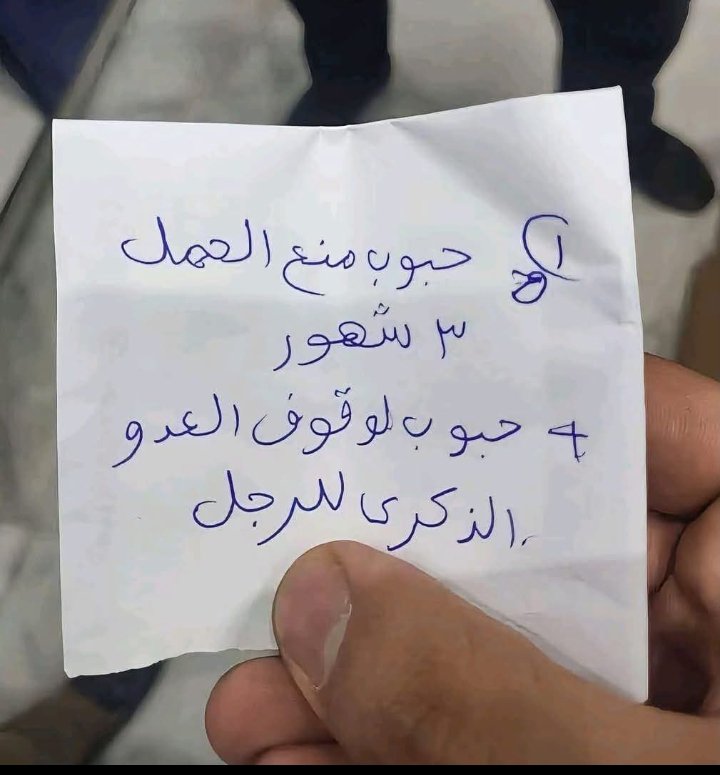 حبوب منع الحمل
٣ شهور
+ حبوب لوقوف العدو
الذكرى للرجل